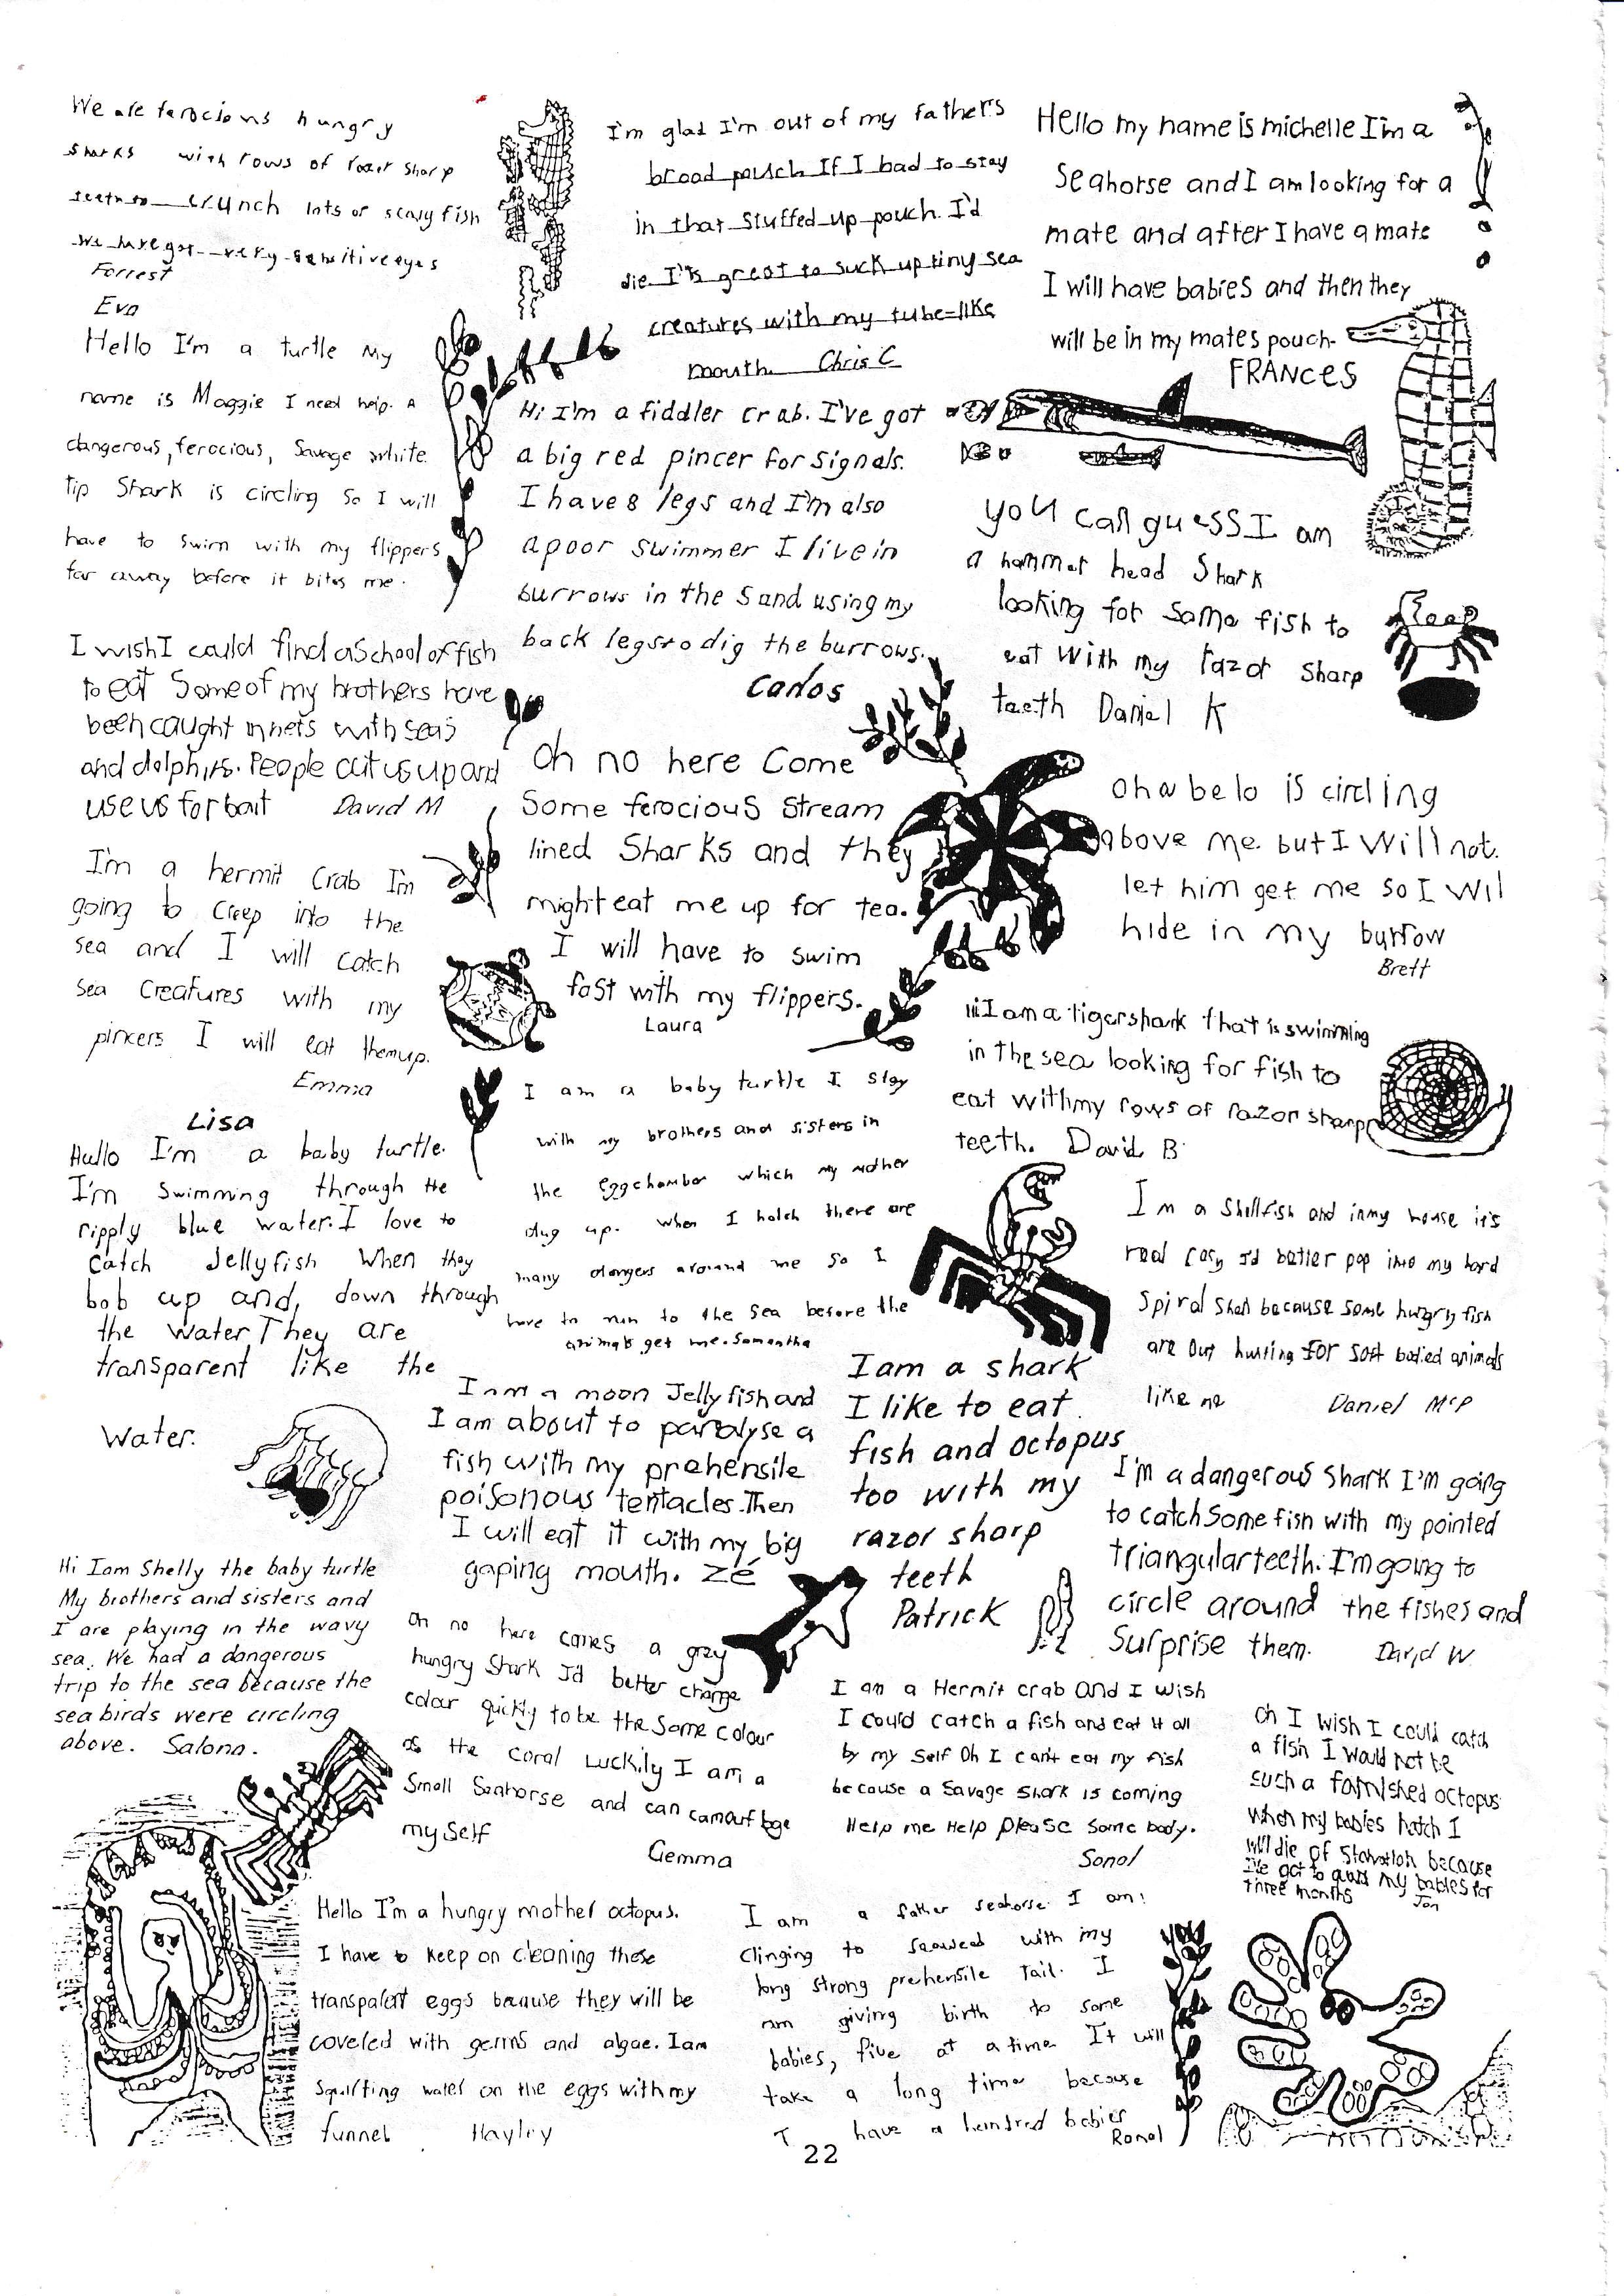 We are ferocious hungry
sharks with rows of razer sharp
teeth to crunch lots of scaly fish
We have got very sensitive eyes
Forrest
Eva
I'm glad I'm out of my father's
broad pouch If I had to stay
in that stuffed up pouch. I'd
die. It's great to suck up tiny sea
creatures with my tube-like
mouth. Chris C
Hello my name is michelle I'm a
Seahorse and I am looking for a
mate and after I have a mate
I will have babies and then they
will be in my mates pouch-
FRANCES
Hello I'm a turtle My
name is Maggie I need help. A
dangerous, ferocious, Savage white
tip Shark is circling so I will
have to swim with my flippers
far away before it bites me.
Hi I'm a fiddler crab. I've got
a big red pincer for signals.
I have 8 legs and I'm also
a poor swimmer I live in
burrows in the sand using my
back legs to dig the burrows.
Carlos
you can guess I am
a hammer head Shark
looking for some fish to
eat with my razor sharp
teeth Daniel K
I wish I could find a School of fish
to eat Some of my brothers have
been caught in nets with seas
and dolphins. People cut us up and
use us for bait David M
Oh no here Come
Some ferocious Stream
lined Sharks and they
might eat me up for tea.
I will have to swim
fast with my flippers.
Laura
oh a belo is circling
above me but I will not.
let him get me so I wil
hide in my burrow
Brett
I'm a hermit Crab I'm
going to creep into the
sea and I will catch
sea creatures with my
pincers I will eat them up.
Emma
hi I am a tiger shark that is swimming
in the sea looking for fish to
eat with my rows of razor sharp
teeth. David B
Lisa
Hullo I'm a baby turtle.
I'm swimming through the
ripply blue water. I love to
catch Jellyfish when they
bob up and, down through
the water They are
transparent like the
water.
I am a baby turtle I stay
with my brothers and sisters in
the eggchamber which my mother
dug up. When I hatch there are
many dangers around me so I
have to run to the sea before the
animals get me. Samantha
I'm a Shellfish and in my house it's
real cosy I'd better pop into my hard
Spiral shell because some hungry fish
are out hunting for soft bodied animals
like me Daniel McP
I am a moon Jelly fish and
I am about to paralyse a
fish with my prehensile
poisonous tentacles. Then
I will eat it with my big
gaping mouth. Zé
I am a shark
I like to eat
fish and octopus
too with my
razor sharp
teeth
Patrick
I'm a dangerous shark I'm going
to catch Some fish with my pointed
triangular teeth. I'm going to
circle around the fishes and
Surprise them. David W
Hi I am Shelly the baby turtle
My brothers and sisters and
I are playing in the wavy
sea. We had a dangerous
trip to the sea because the
sea birds were circling
above. Salona.
Oh no here comes a grey
hungry Shark I'd better change
colour quickly to be the same colour
as the coral Luckily I am a
Small Seahorse and can camouflage
my self
Gemma
I am a Hermit crab and I wish
I could catch a fish and eat it all
by my self Oh I can't eat my fish
because a Savage Shark is coming
Help me Help please some body.
Sonol
oh I wish I could catch
a fish I would not be
such a famished octopus
when my babies hatch I
will die of starvation because
I've got to guard my babies for
three months
Jon
Hello I'm a hungry mother octopus.
I have to keep on cleaning these
transparent eggs because they will be
covered with germs and algae. I am
Squirting water on the eggs with my
funnel Hayley
I am a father seahorse I am!
clinging to seaweed with my
long strong prehensile tail. I
am giving birth to some
babies, five at a time It will
take a long time because
I have a hundred babies
Ronol
22